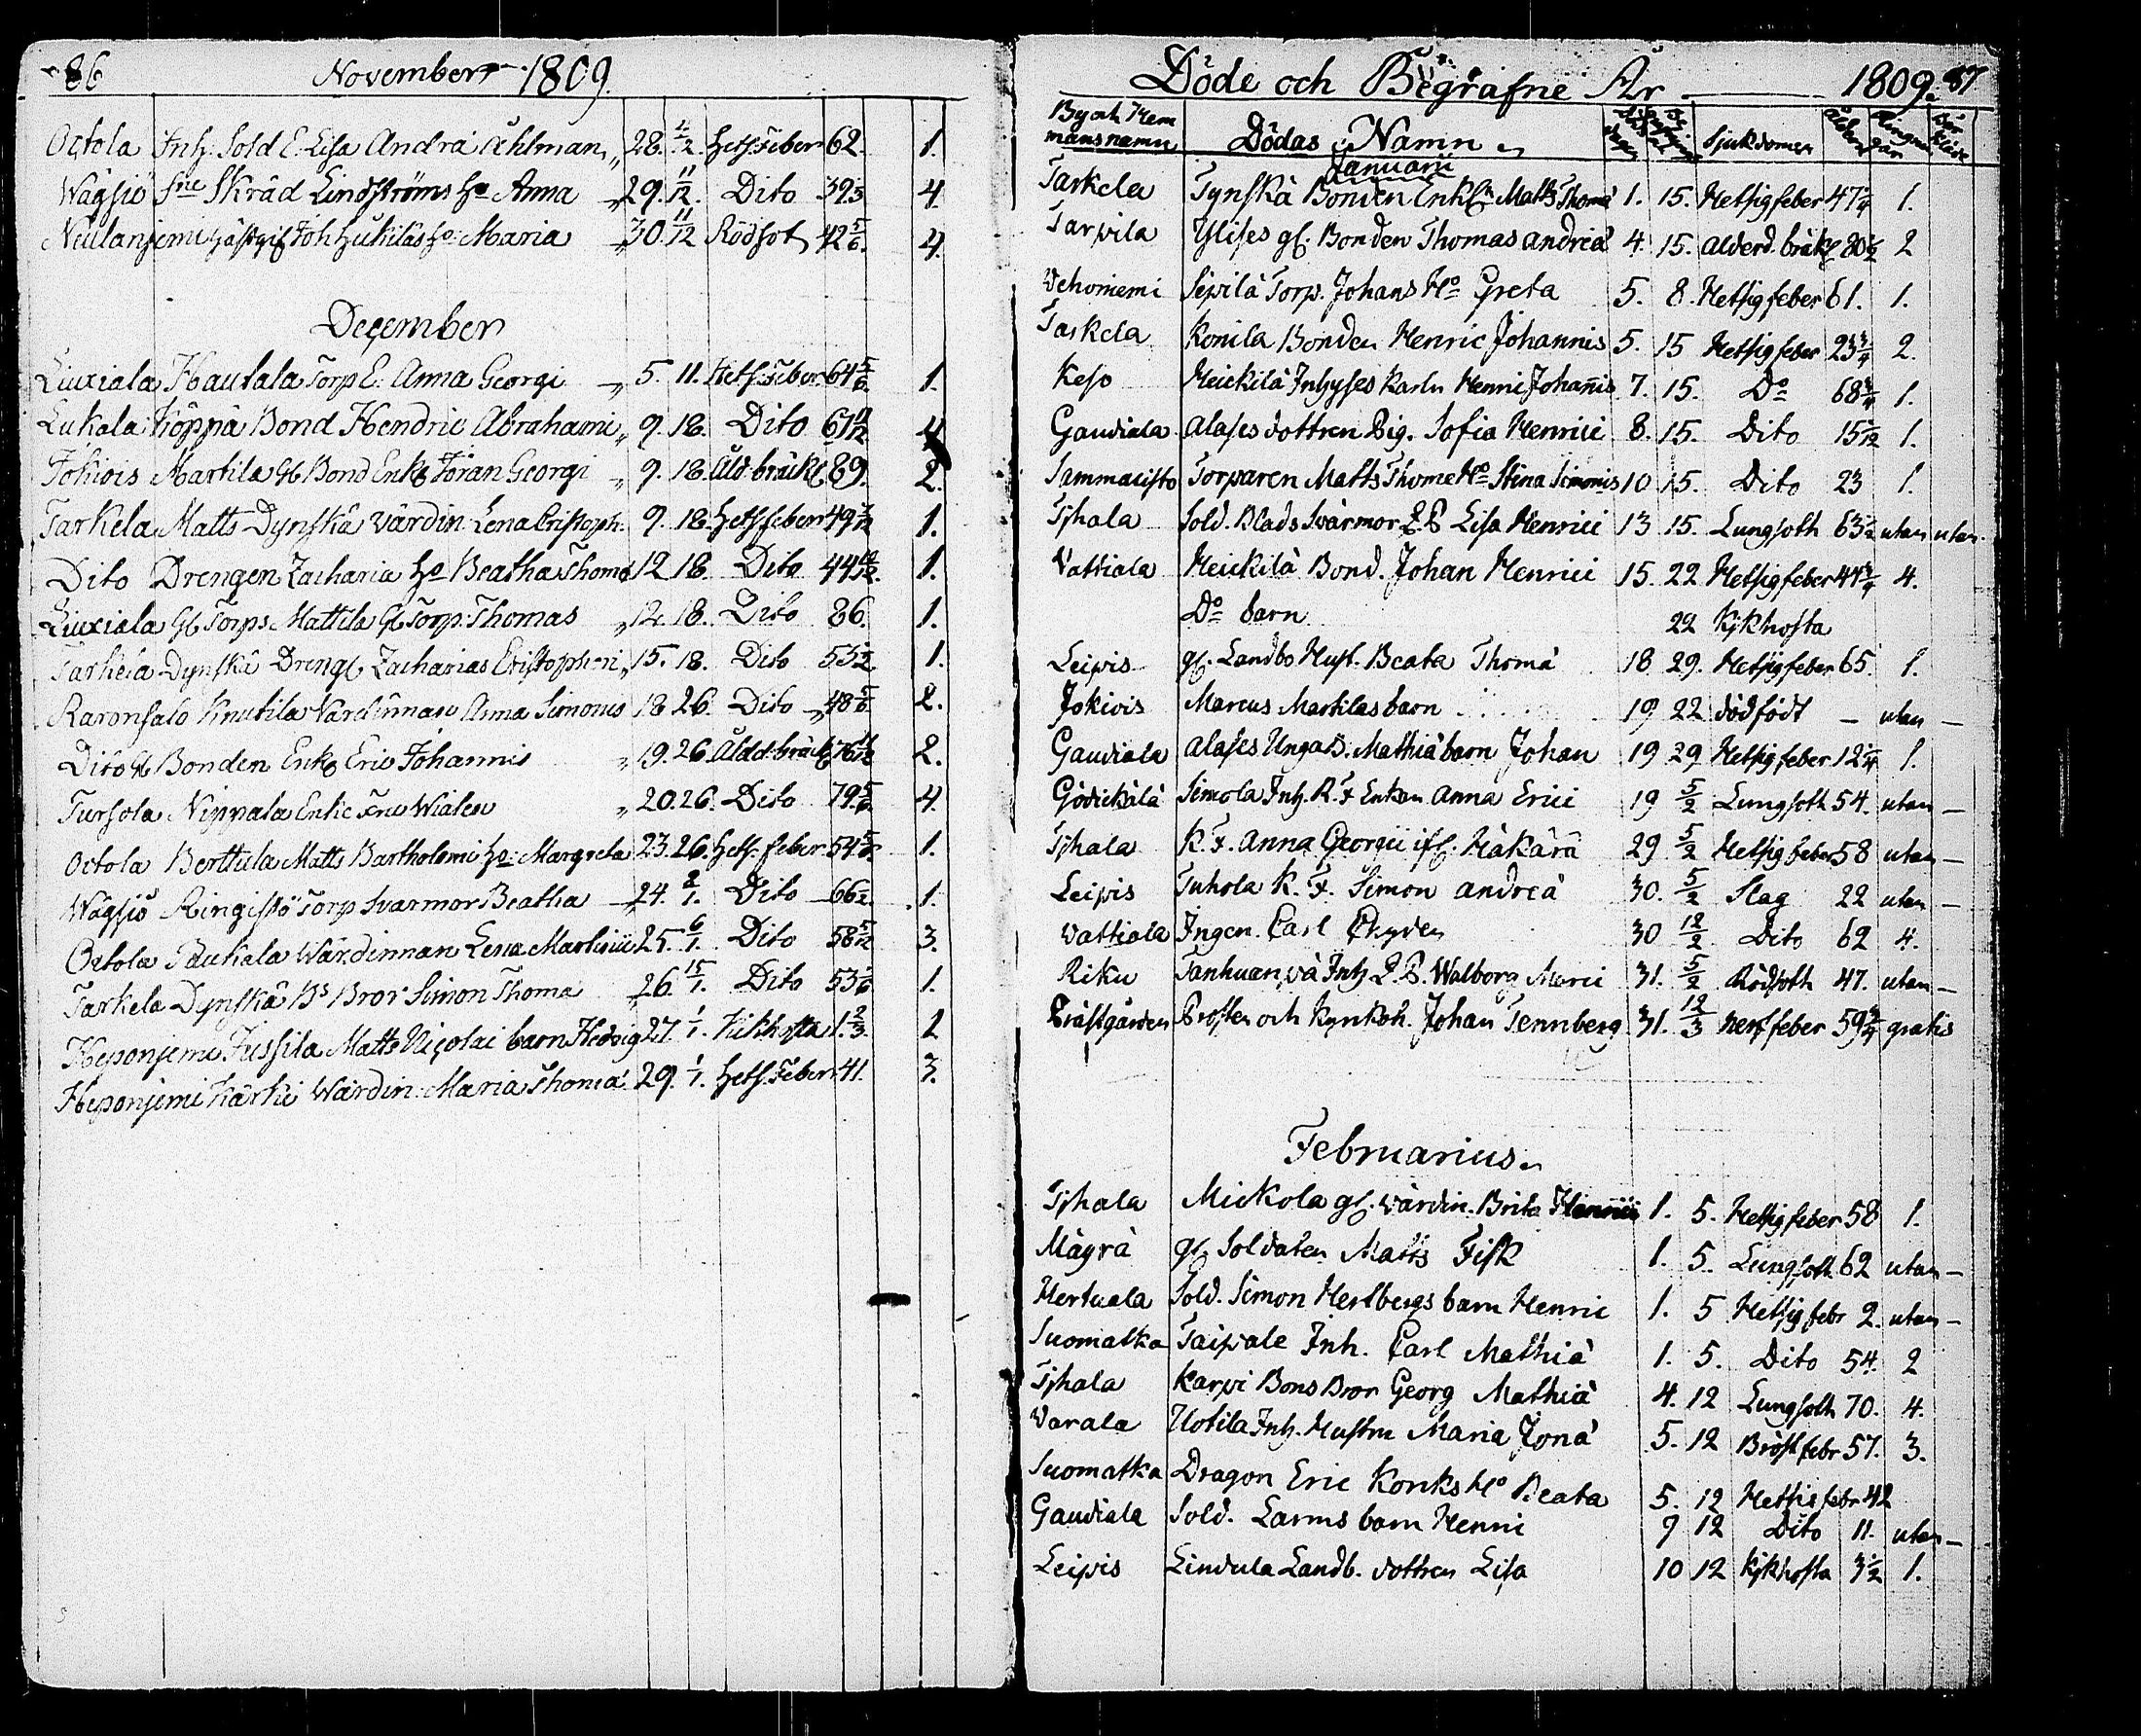 86 November 1809.
Octola Inh: Sold E. Lisa Andrä Åhlman 28. 4/12. Hets. Feber 62. 1.
Wägsiö Skräd Lindströms Ho Anna 29. 11/12. Dito 39 4
Neulanjemi Gästgif Joh Hukilas Ho: Maria 30. 11/12 Rödsot 42 5/6. 4.
December
Liuxiala Hautala Torp E. Anna Georgi 5. 11. Hets. Feber 64 5/6. 1.
Lukala Köppä Bond Hendric Abrahami 9. 18. Dito 4
Jokiois Martila Gl Bond Enk Jöran Georgi 9. 18. Åld. bräckl 89. 2.
Tarkela Matts Dynskä Wärdin Lena Cristoph. 9. 18. Hets feber 49 1.
Dito Drengen Zacharia Ho Beatha Thomæ 12 18. Dito 44 1.
Liuxiala Gl Torps Mattila Gl Torp. Thomas 12. 18. Dito 86. 1.
Tarkela Dynskä Dreng Zacharias Cristopheri 15. 18. Dito 53 1/2 1.
Raronsalo Knutila Wärdinnan Anna Simonis 18 26. Dito 48 5/6 2.
Dito Gl Bonden Enk Eric Johannis 19. 26. Ålld. bräckl 76 2.
Tursola Nippala Enke Fru 20. 26. Dito 79 5/6 4.
Octola Berttula Matts Bartholomi Ho: Margreta 23. 26. Hets. feber 54 5/6. 1.
Wägsiö Ringistö Torp Svarmor Beatha 24. 2/1. Dito 66 1/2. 1
Octola Paukala Wärdinnan Lena Martini 25. 6/1. Dito 58 5/12 3.
Tarkela Dynskä Bs Bror Simon Thomæ 26. 15/1. Dito 53 1/6 1
Heponjemi Jussila Matts Nicolai barn Hedvig 27. 1/1. Kikhosta 1 2/3. 2
Heponjemi Kärki Wärdin: Maria Thomæ 29. 1/1. Hets. Feber 41. 3.
Döde och Begrafne År 1809. 87.
By och Hemmansnamn Dödas Namn Sjukdomen Ålder
Januarii
Tarkela Tynskä Bonden Matts Thomæ 1. 15. Hetsig feber 47 1/4 1.
Tarpila Ylises gl. Bonden Thomas Andreæ 4. 15. Alderd. bräckl 80 1/2 2
Vehoniemi Sepilä Torp. Johans Ho Greta 5. 8. Hetsig feber 61. 1.
Tarkela Konila Bonden Henric Johannis 5. 15 Hetsig feber 23 3/4 2.
Keso Heickilä Inhyses Karln Henric Johannis 7. 15. Do 68 3/4 1.
Gaudiala Alases dottren Pig. Sofia Henrici 8. 15. Dito 15 1/12 1.
Sammalisto Torparen Matts Thomæ Ho Stina Simonis 10 15. Dito 23 1.
Tjhala Sold. Blads Svärmor Lisa Henrici 13 15. Lungsoth 63 1/2 utan utan.
Vattiala Heickilä Bond. Johan Henrici 15. 22 Hetsig feber 44 3/4 4.
Do barn 22 Kjkhosta
Leipis gl. Landbo Hust. Beata Thomæ 18 29. Hetsig feber 65. 1.
Jokiois Marcus Martilas barn 19 22 dödfödt — utan —
Gaudiala Alases Unga B. Mathiæ barn Johan 19 29 Hetsig feber 12 1/4 1.
Gödickälä Simola Inh. R. F Enkan Anna Erici 19 5/2 Lungsoth 54. utan —
Tjhala K. F. Anna Georgii 29 5/2 Hetsig feber 58 utan —
Leipis Tuhola K. F. Simon Andreæ 30. 5/2 Slag 22 utan —
Wattiala Ingen. Carl 30 12/2 Dito 62 4.
Riku Tanhuanpä Inh Walborg 31. 5/2 Rödsoth 47. utan —
Prästgården Prosten och Kyrkoh. Johan Tennberg 31. 12/3 nerffeber 59 3/4 gratis
Februarius
Tjhala Mickola gl. wärdin. Brita Henrici 1. 5. Hetsig feber 58 1.
Mäyrä gl. Soldaten Matts Fisk 1. 5. Lungsoth 62 utan —
Hertuala Sold. Simon Hertbergs barn Henric 1. 5 Hetsig febr 2. utan —
Suomatka Taipale Inh. Carl Mathiæ 1. 5. Dito 54. 2
Tjhala Karpi Bons Bror Georg Mathiæ 4. 12 Lungsoth 70. 4.
Varala Uotila Inh. Hustru Maria Jonæ 5. 12 Bröstfebr 57. 3.
Suomatka Dragon Eric Konks Ho Beata 5. 12 Hetsig febr 42
Gaudiala Sold. Larms barn Henric 9 12 Dito 11. utan —
Leipis Lindula Landb. dottren Lisa 10 12 Kjkhosta 3 1/2 1.